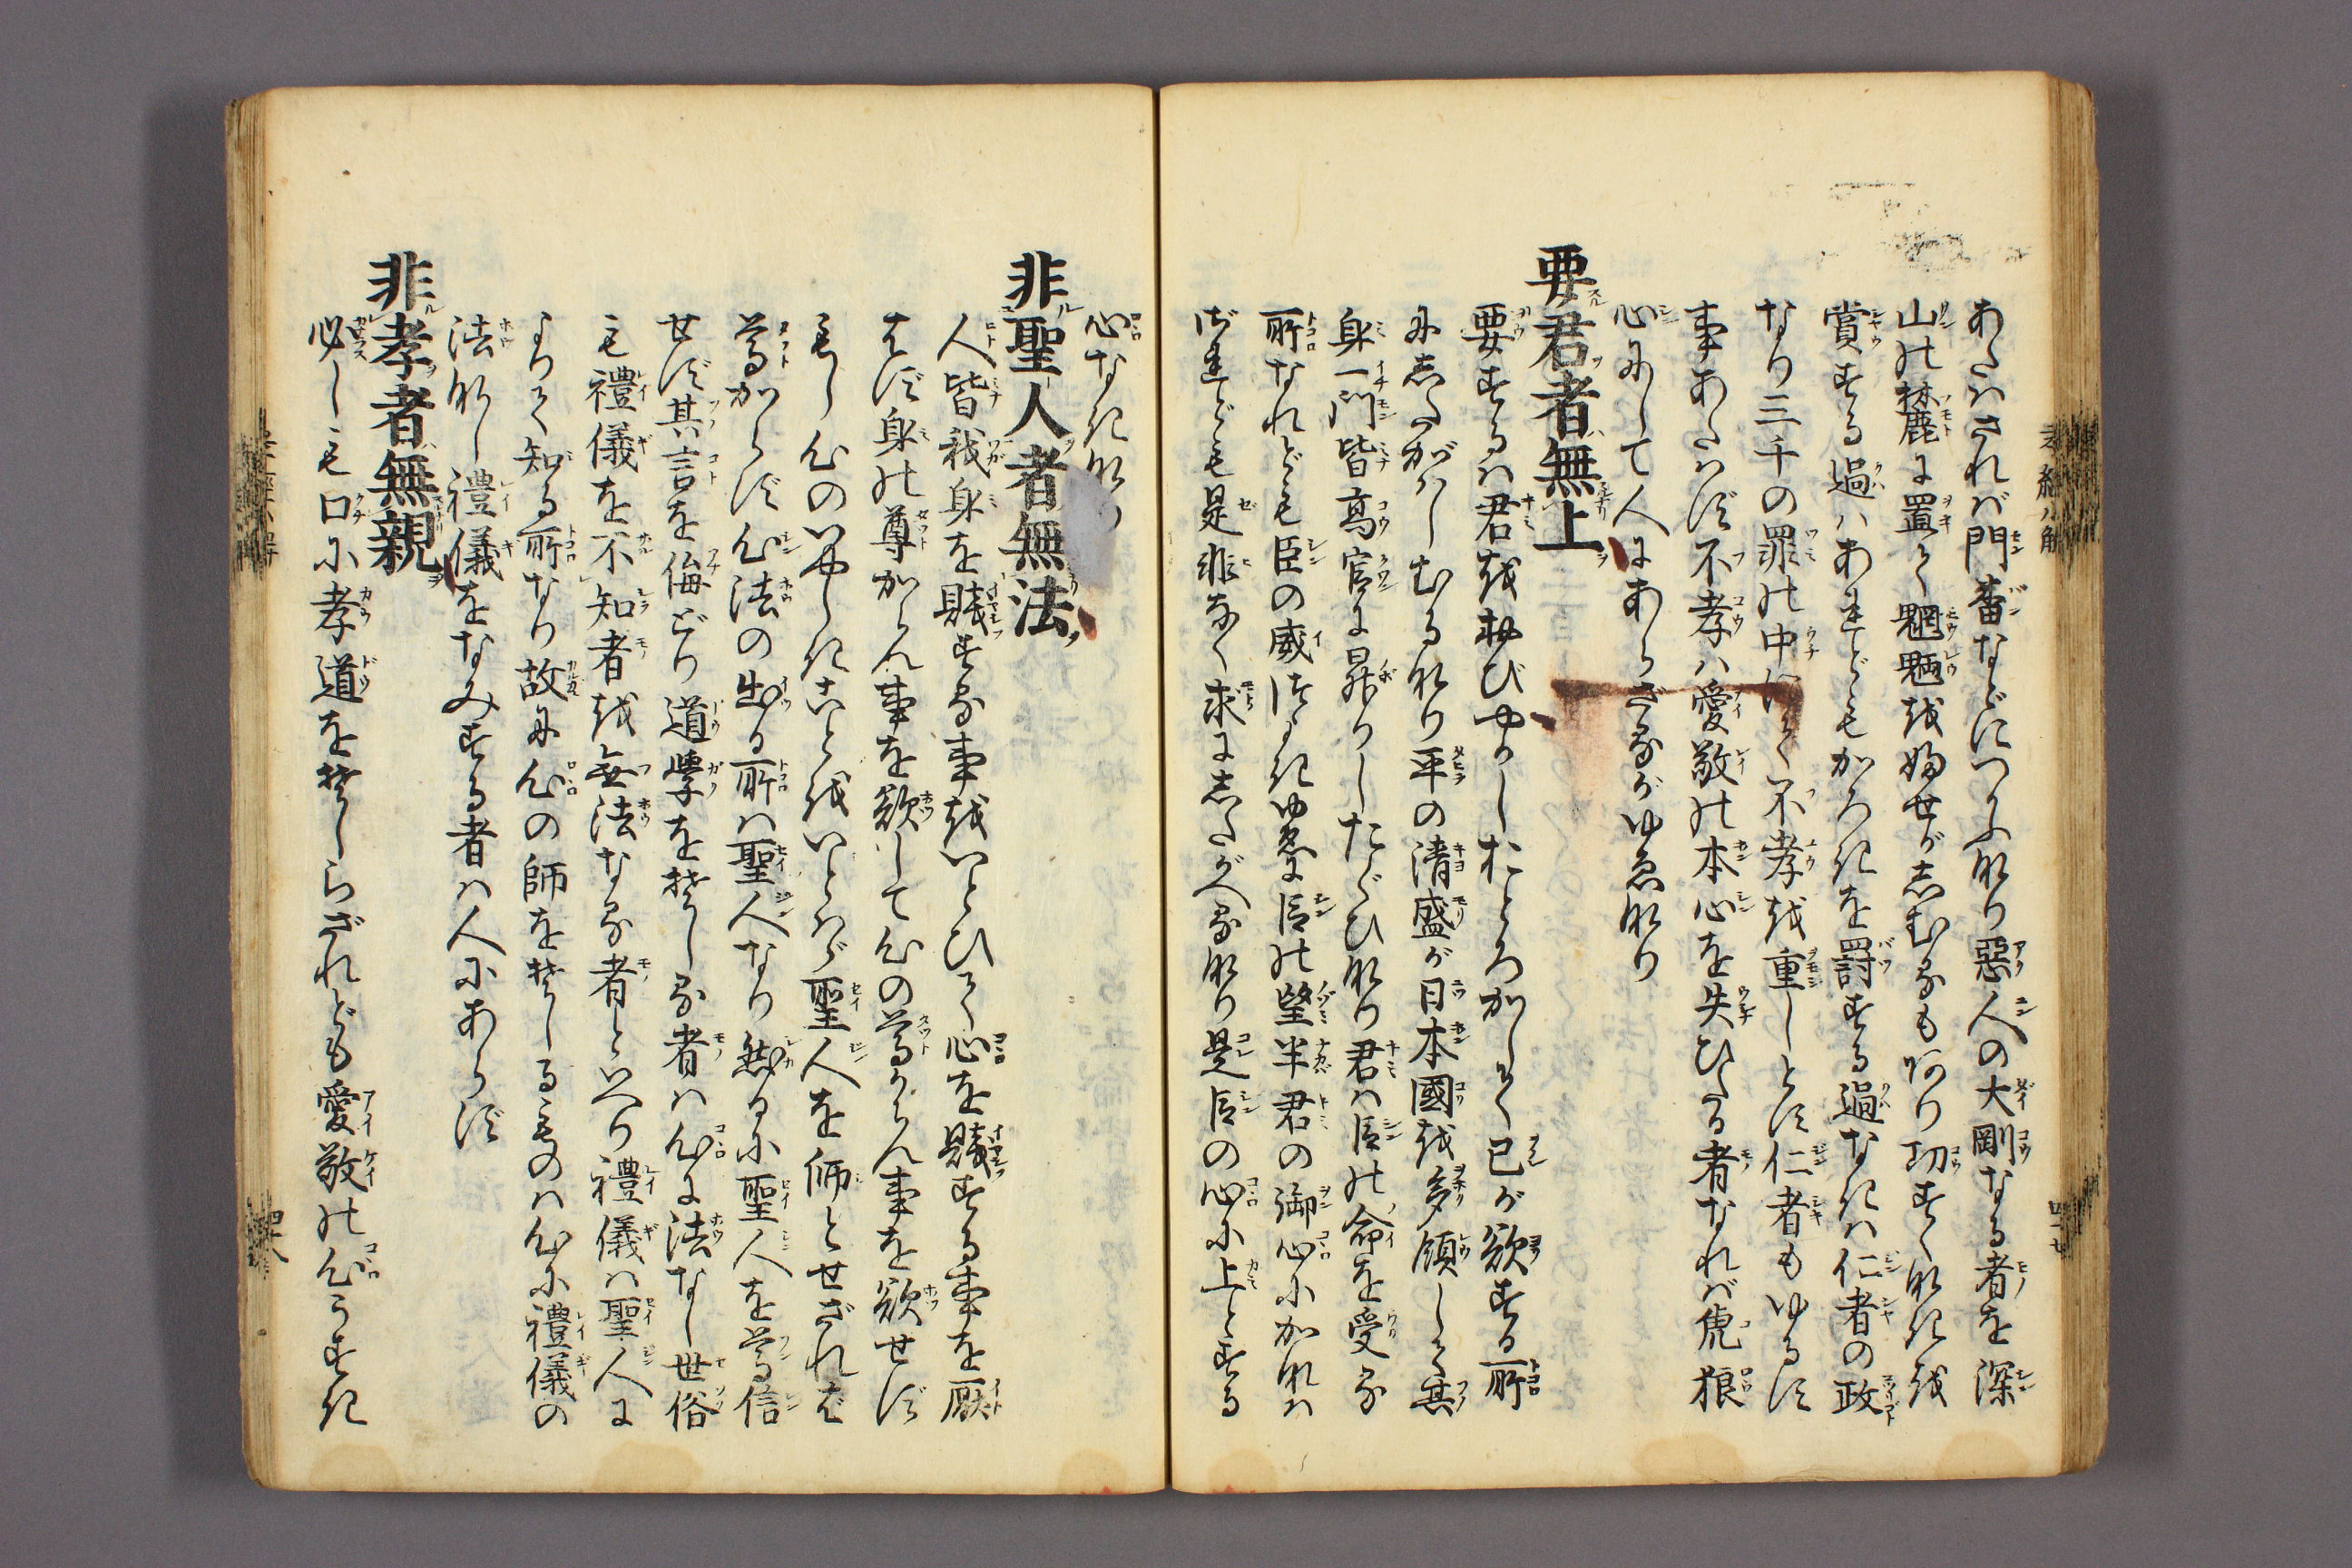 あたはされば門番などにつかふ也り惡人の大剛なる者を深
山の麓に置て魍魎を婦せがしむるも阿り功すくなきを
賞する過はあれどもかろきを罰する過なきは仁者の政
なり三千の罪の中にて不孝を重しとす仁者もゆるす
事あたはず不孝は愛敬の本心を失ひたる者なれば虎狼
心にして人にあらざるがゆゑなり
要君者無上
要するは君を劫びやかしおどろかして己が欲する所
にしたがはしむるなり平の清盛が日本國を多領して其
身一門皆高官に昇りしたぐひなり君は臣の命を受る
所なれども臣の威つよきゆゑに臣の望半君の御心にかなは
ざれども是非なく求にしたがへるなり是臣の心に上とする
心なきなり
非聖人者無法
人皆我身を賤する事をいとひて心を賤する事を厭
はず身の尊からん事を欲して心の尊からん事を欲せず
もし心のいやしきことをいとはゞ聖人を師とせざれば
尊からず心法の出る所は聖人なり然るに聖人を尊信
せず其言を侮どり道學をそしる者は心に法なし世俗
も禮儀を不知者を無法なる者といへり禮儀は聖人に
よりて知る所なり故に心の師をそしるものは心に禮儀の
法なし禮儀をなみする者は人にあらず
非孝者無親
必しも口に孝道をそしらざれども愛敬の心うすき